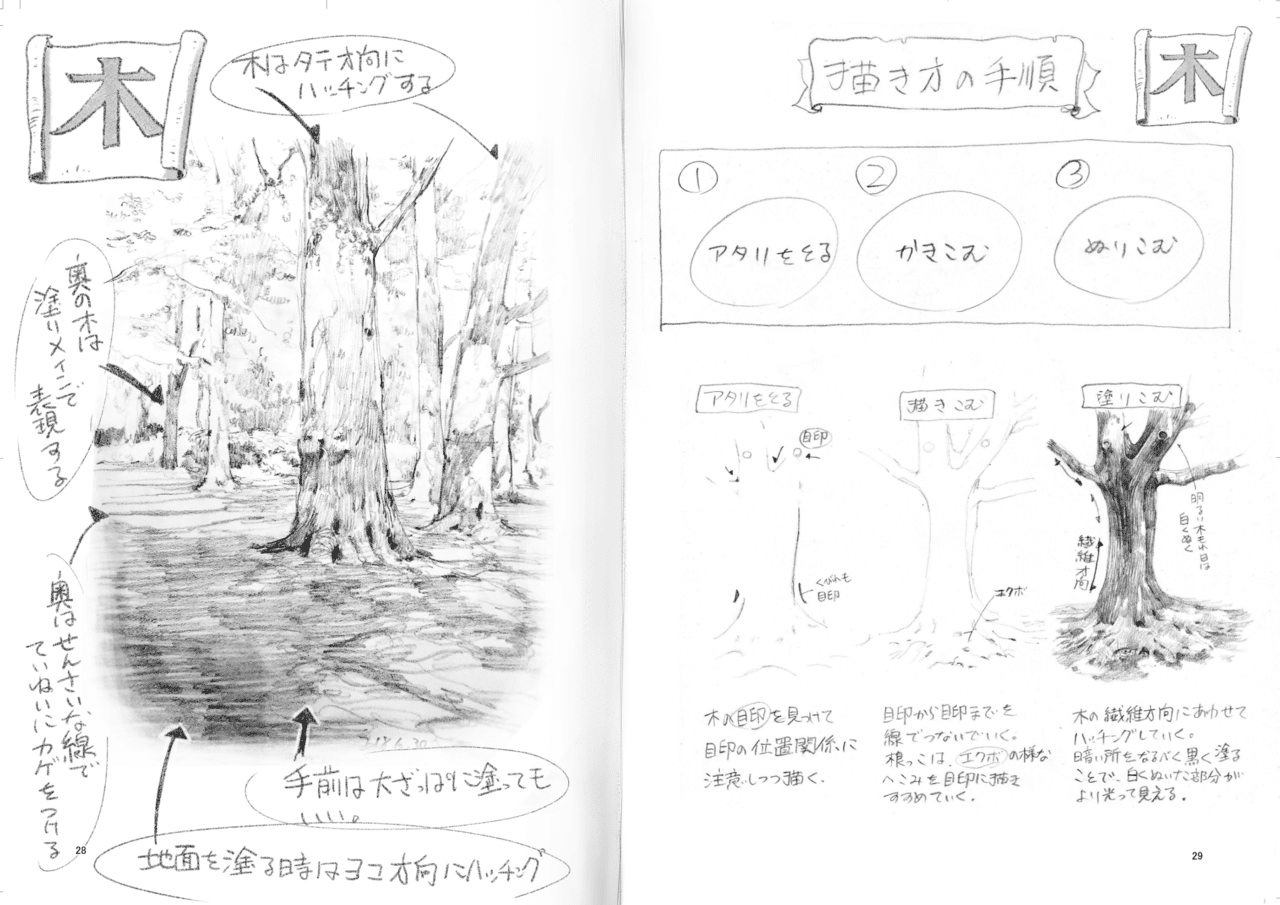 木
木はタテ方向に
ハッチングする
奥の木は
塗りメインで
表現する
奥はせんさいな線で
ていねいにカゲをつける
手前は大ざっぱに塗っても
いい。
地面を塗る時はヨコ方向にハッチング
28
描き方の手順
木
① ② ③
アタリをとる かきこむ ぬりこむ
アタリをとる
目印
くびれも
目印
木の目印を見つけて
目印の位置関係に
注意しつつ描く。
描きこむ
エクボ
目印から目印までを
線でつないでいく。
根っこは、エクボの様な
へこみを目印に描き
すすめていく。
塗りこむ
明るい木もれ日は
白くぬく
繊維方向
木の繊維方向にあわせて
ハッチングしていく。
暗い所をなるべく黒く塗る
ことで、白くぬいた部分が
より光って見える。
29